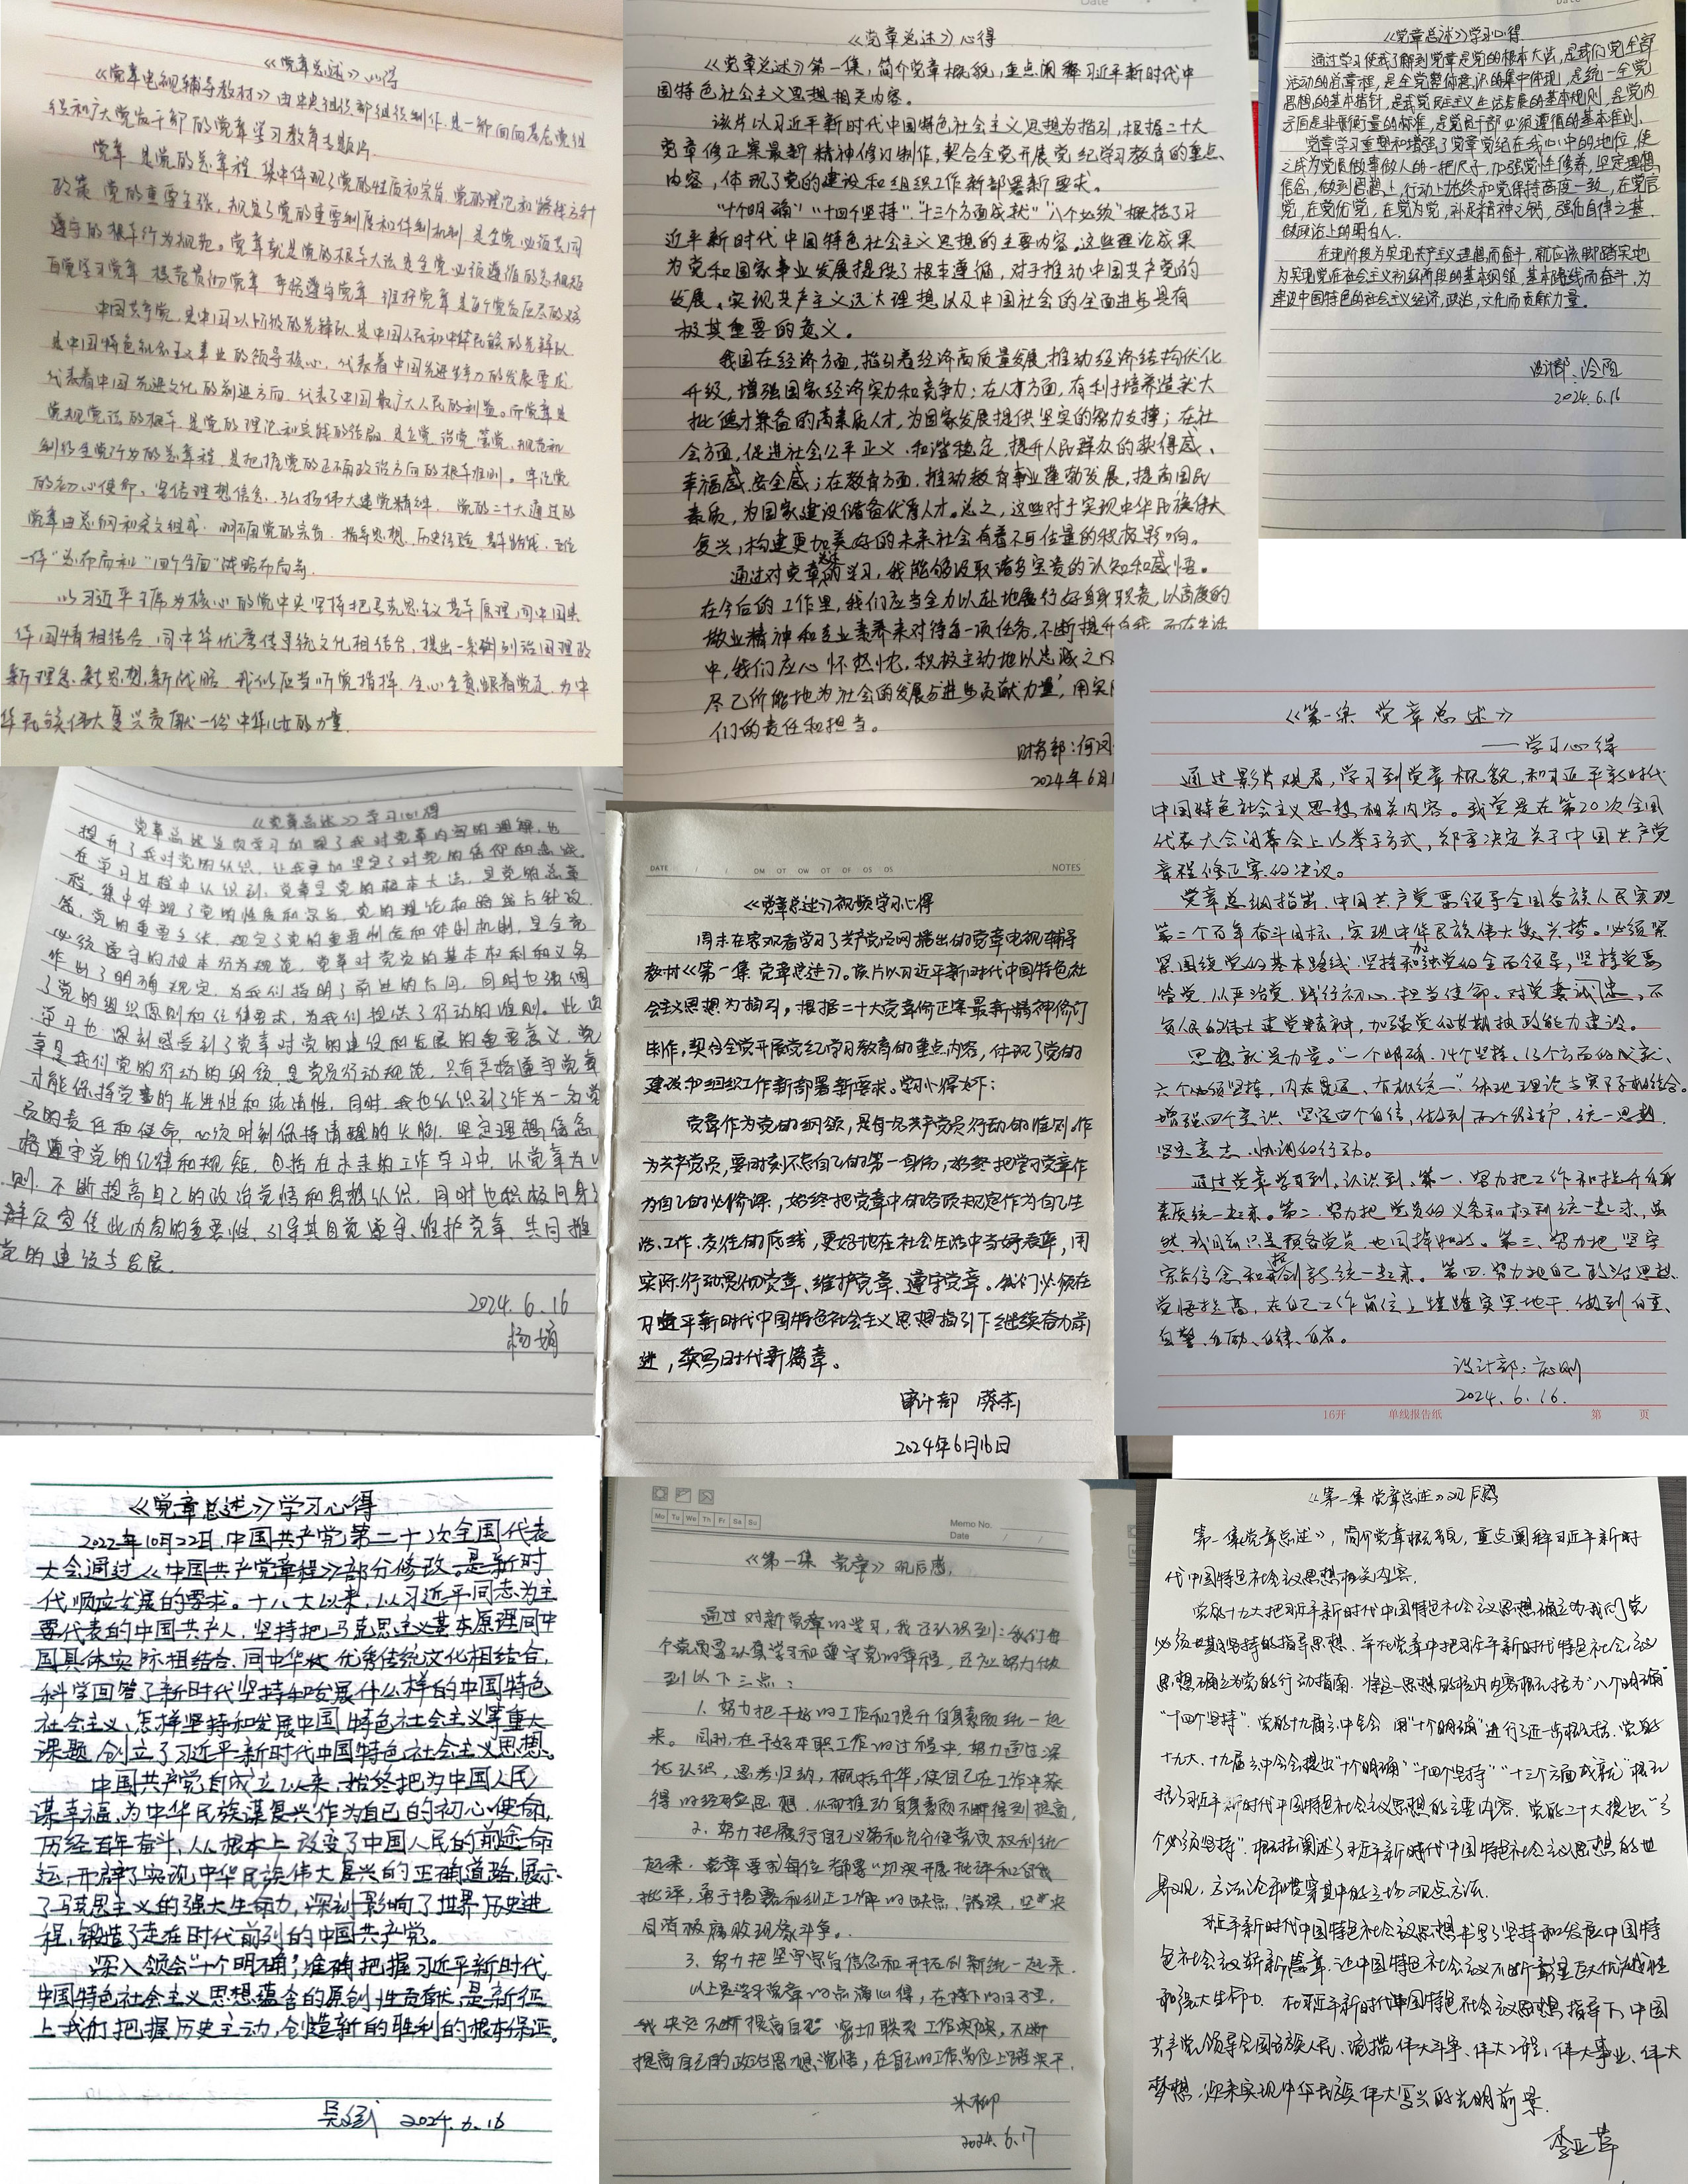 《党章总述》心得
《党章电视辅导教材》由中央组织部组织制作,是一部面向基层党组
织和广大党员干部的党章学习教育专题片。
党章是党的总章程,集中体现了党的性质和宗旨,党的理论和路线方针
政策,党的重要主张,规定了党的重要制度和体制机制,是全党必须共同
遵守的根本行为规范。党章就是党的根本大法是全党必须遵循的总规矩
自觉学习党章 模范贯彻党章 严格遵守党章 维护党章是每个党员应尽的
中国共产党,是中国工人阶级的先锋队,是中国人民和中华民族的先锋队
是中国特色社会主义事业的领导核心,代表着中国先进生产力的发展要求
代表着中国先进文化的前进方向,代表了中国最广大人民的利益。而党章是
党规党法的根本,是党的理论和实践的结晶,是立党、治党、管党、规范和
制约全党行为的总章程,是把握党的正确政治方向的根本准则。牢记党
的初心使命、坚信理想信念、弘扬伟大建党精神。党的二十大通过的
党章由总纲和条文组成,明确党的宗旨、指导思想、历史经验、基本路线、五位
一体"总布局和"四个全面"战略布局等。
以习近平主席为核心的党中央坚持把马克思主义基本原理同中国具
体国情相结合,同中华优秀传统文化相结合,提出一系列治国理政
新理念,新思想,新战略,我们应当听党指挥,全心全意跟着党走,为中
华民族伟大复兴贡献一份中华儿女的力量.
《党章总述》心得
《党章总述》第一集,简介党章概貌,重点阐释习近平新时代中
国特色社会主义思想相关内容。
该片以习近平新时代中国特色社会主义思想为指引,根据二十大
党章修正案最新精神修订制作,契合全党开展党纪学习教育的重点
内容,体现了党的建设和组织工作新部署新要求。
"十个明确""十四个坚持""十三个方面成就""六个必须"概括了习
近平新时代中国特色社会主义思想的主要内容。这些理论成果
为党和国家事业发展提供了根本遵循,对于推动中国共产党的
发展、实现共产主义远大理想以及中国社会的全面进步具有
极其重要的意义。
我国在经济方面,指引着经济高质量发展,推动经济结构优化
升级,增强国家经济实力和竞争力;在人才方面,有利于培养造就大
批德才兼备的高素质人才,为国家发展提供坚实的智力支撑;在社
会方面,促进社会公平正义、和谐稳定,提升人民群众的获得感、
幸福感、安全感;在教育方面,推动教育事业蓬勃发展,提高国民
素质,为国家建设储备优秀人才。总之,这些对于实现中华民族伟大
复兴,构建更加美好的未来社会有着不可估量的积极影响。
通过对党章总述的学习,我能够汲取诸多宝贵的认知和感悟。
在今后的工作里,我们应当全力以赴地履行好自身职责,以高度的
敬业精神和专业素养来对待每一项任务,不断提升自我,而在生活
中,我们应心怀热忱,积极主动地以忠诚之心
尽己所能地为社会的发展与进步贡献力量,用实
们的责任和担当。
财务部:何
2024年6月1
《党章总述》学习心得
通过学习使我了解到党章是党的根本大法,是我们党全部
活动的总章程,是全党整体意识的集中体现,是统一全党
思想的基本指针,是我党民主主义生活发展的基本规则,是党内
方面是非曲直衡量的标准,是党员干部必须遵循的基本准则。
党章学习重塑和增强了党章党纪在我心中的地位,使
之成为党员做事做人的一把尺子,加强党性修养,坚定理想
信念,做到思想上,行动上始终和党保持高度一致,在党言
党,在党忧党,在党为党,补足精神之钙,强化自律之基,
做政治上的明白人。
在现阶段为实现共产主义理想而奋斗,就应该脚踏实地
为实现党在社会主义初级阶段的基本纲领,基本路线而奋斗,为
建设中国特色的社会主义经济,政治,文化而贡献力量。
设计部:冷阳
2024.6.16
《第一集 党章总述》
——学习心得
通过影片观看,学习到党章概貌,和习近平新时代
中国特色社会主义思想相关内容。我党是在第20次全国
代表大会闭幕会上以举手方式,郑重决定关于中国共产党
章程修正案的决议。
党章总纲指出,中国共产党要领导全国各族人民实现
第二个百年奋斗目标,实现中华民族伟大复兴梦。必须紧
紧围绕党的基本路线,坚持和加强党的全面领导,坚持党要
管党、从严治党,践行初心、担当使命、对党忠诚,不
负人民的伟大建党精神,加强党的长期执政能力建设。
思想就是力量。"十个明确、14个坚持、13个方面的成就、
六个必须坚持,内在贯通、有机统一"体现理论与实践相结合。
增强四个意识、坚定四个自信,做到两个维护,统一思想、
坚定意志、协调的行动。
通过党章学习到,认识到,第一、努力把工作和提升自身
素质统一起来。第二、努力把党员的义务和权利统一起来,虽
然我目前只是预备党员,也同样如此。第三、努力把坚守
宗旨信念和开拓创新统一起来。第四、努力把自己政治思想、
觉悟提高,在自己工作岗位上踏踏实实地干,做到自重、
自警、自励、自律、自省。
设计部:
2024.6.16.
16开 单线报告纸 第 页
《党章总述》学习心得
党章总述这次学习加深了我对党章内容的理解,也
提升了我对党的认识,让我更加坚定了对党的信仰和忠诚。
在学习过程中认识到,党章是党的根本大法,是党的总章
程,集中体现了党的性质和宗旨,党的理论和路线方针政
策,党的重要主张,规定了党的重要制度和体制机制,是全党
必须遵守的根本行为规范。党章对党员的基本权利和义务
作出了明确规定,为我们指明了前进的方向,同时也强调
了党的组织原则和纪律要求,为我们提供了行动的准则。此次
学习也深刻感受到了党章对党的建设和发展的重要意义,党
章是我们党的行动的纲领,是党员行动规范,只有严格遵守党章
才能保持党的先进性和纯洁性,同时,我也认识到了作为一名党
员的责任和使命,必须时刻保持清醒的头脑,坚定理想信念
格遵守党的纪律和规矩,包括在未来的工作学习中,以党章为
则,不断提高自己的政治觉悟和思想认识,同时也积极向身
群众宣传此内容的重要性,引导其自觉遵守、维护党章,共同推
党的建设与发展。
2024.6.16
杨娟
DATE / / NOTES
《党章总述》视频学习心得
周末在家观看学习了共产党员网播出的党章电视辅导
教材《第一集 党章总述》。该片以习近平新时代中国特色社
会主义思想为指引,根据二十大党章修正案最新精神修订
制作,契合全党开展党纪学习教育的重点内容,体现了党的
建设和组织工作新部署新要求。学习心得如下:
党章作为党的纲领,是每名共产党员行动的准则。作
为共产党员,要时刻不忘自己的第一身份,始终把学习党章作
为自己的必修课,始终把党章中的各项规定作为自己生
活、工作、交往的底线,更好地在社会生活中当好表率,用
实际行动贯彻党章、维护党章、遵守党章。我们必须在
习近平新时代中国特色社会主义思想指引下继续奋力前
进,续写时代新篇章。
审计部 蔡莉
2024年6月16日
《党章总述》学习心得
2022年10月22日,中国共产党第二十次全国代表
大会通过《中国共产党章程》部分修改,是新时
代顺应发展的要求。十八大以来,以习近平同志为主
要代表的中国共产人,坚持把马克思主义基本原理同中
国具体实际相结合、同中华优秀传统文化相结合,
科学回答了新时代坚持和发展什么样的中国特色
社会主义、怎样坚持和发展中国特色社会主义等重大
课题,创立了习近平新时代中国特色社会主义思想。
中国共产党自成立以来,始终把为中国人民
谋幸福、为中华民族谋复兴作为自己的初心使命,
历经百年奋斗,从根本上改变了中国人民的前途命
运,开辟了实现中华民族伟大复兴的正确道路,展示
了马克思主义的强大生命力,深刻影响了世界历史进
程,锻造了走在时代前列的中国共产党。
深入领会"十个明确",准确把握习近平新时代
中国特色社会主义思想蕴含的原创性贡献,是新征程
上我们把握历史主动,创造新的胜利的根本保证。
2024.6.16
Mo Tu We Th Fr Sa Su
Memo No.
Date / /
《第一集 党章》观后感.
通过对新党章的学习,我已认识到:我们每
个党员要认真学习和遵守党的章程,还应努力做
到以下三点:
1、努力把干好的工作和提升自身素质统一起
来。同时,在干好本职工作的过程中,努力通过深
化认识,思考归纳,概括升华,使自己在工作中获
得的经验思想,从而推动自身素质不断得到提高。
2、努力把履行自己义务和充分使党员权利统一
起来。党章要求每位都要"切实开展批评和自我
批评,勇于揭露和纠正工作中的缺点、错误,坚决
同消极腐败现象斗争。
3、努力把坚守宗旨信念和开拓创新统一起来.
以上是学习党章的点滴心得,在接下的日子里,
我决定不断提高自己,密切联系工作实际,不断
提高自己的政治思想觉悟,在自己的工作岗位上踏实干.
米柳
2024.6.17
《第一集党章总述》观后感
第一集《党章总述》,简介党章概貌,重点阐释习近平新时
代中国特色社会主义思想相关内容.
党的十九大把习近平新时代中国特色社会主义思想确立为我们党
必须长期坚持的指导思想,并在党章中把习近平新时代特色社会主义
思想确立为党的行动指南.将这一思想的核心内容概括为"八个明确"
"十四个坚持".党的十九届六中全会用"十个明确"进行了进一步概括.党的
十九大、十九届六中全会提出"十个明确""十四个坚持""十三个方面成就"概
括了习近平新时代中国特色社会主义思想的主要内容.党的二十大提出"六
个必须坚持",概括阐述了习近平新时代中国特色社会主义思想的世
界观、方法论和贯穿其中的立场观点方法.
习近平新时代中国特色社会主义思想书写了坚持和发展中国特
色社会主义新篇章.让中国特色社会主义不断彰显巨大优越性
和强大生命力.在习近平新时代中国特色社会主义思想指导下,中国
共产党领导全国各族人民,统揽伟大斗争、伟大工程、伟大事业、伟大
梦想,迎来实现中华民族伟大复兴的光明前景.
李亚苹